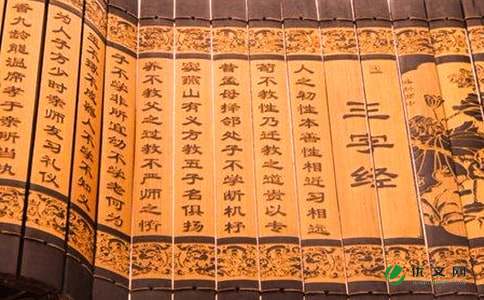 三字经
人之初性本善性相近习相远
苟不教性乃迁教之道贵以专
昔孟母择邻处子不学断机杼
窦燕山有义方教五子名俱扬
养不教父之过教不严师之惰
子不学非所宜幼不学老何为
玉不琢不成器人不学不知义
为人子方少时亲师友习礼仪
香九龄能温席孝于亲所当执
优文网